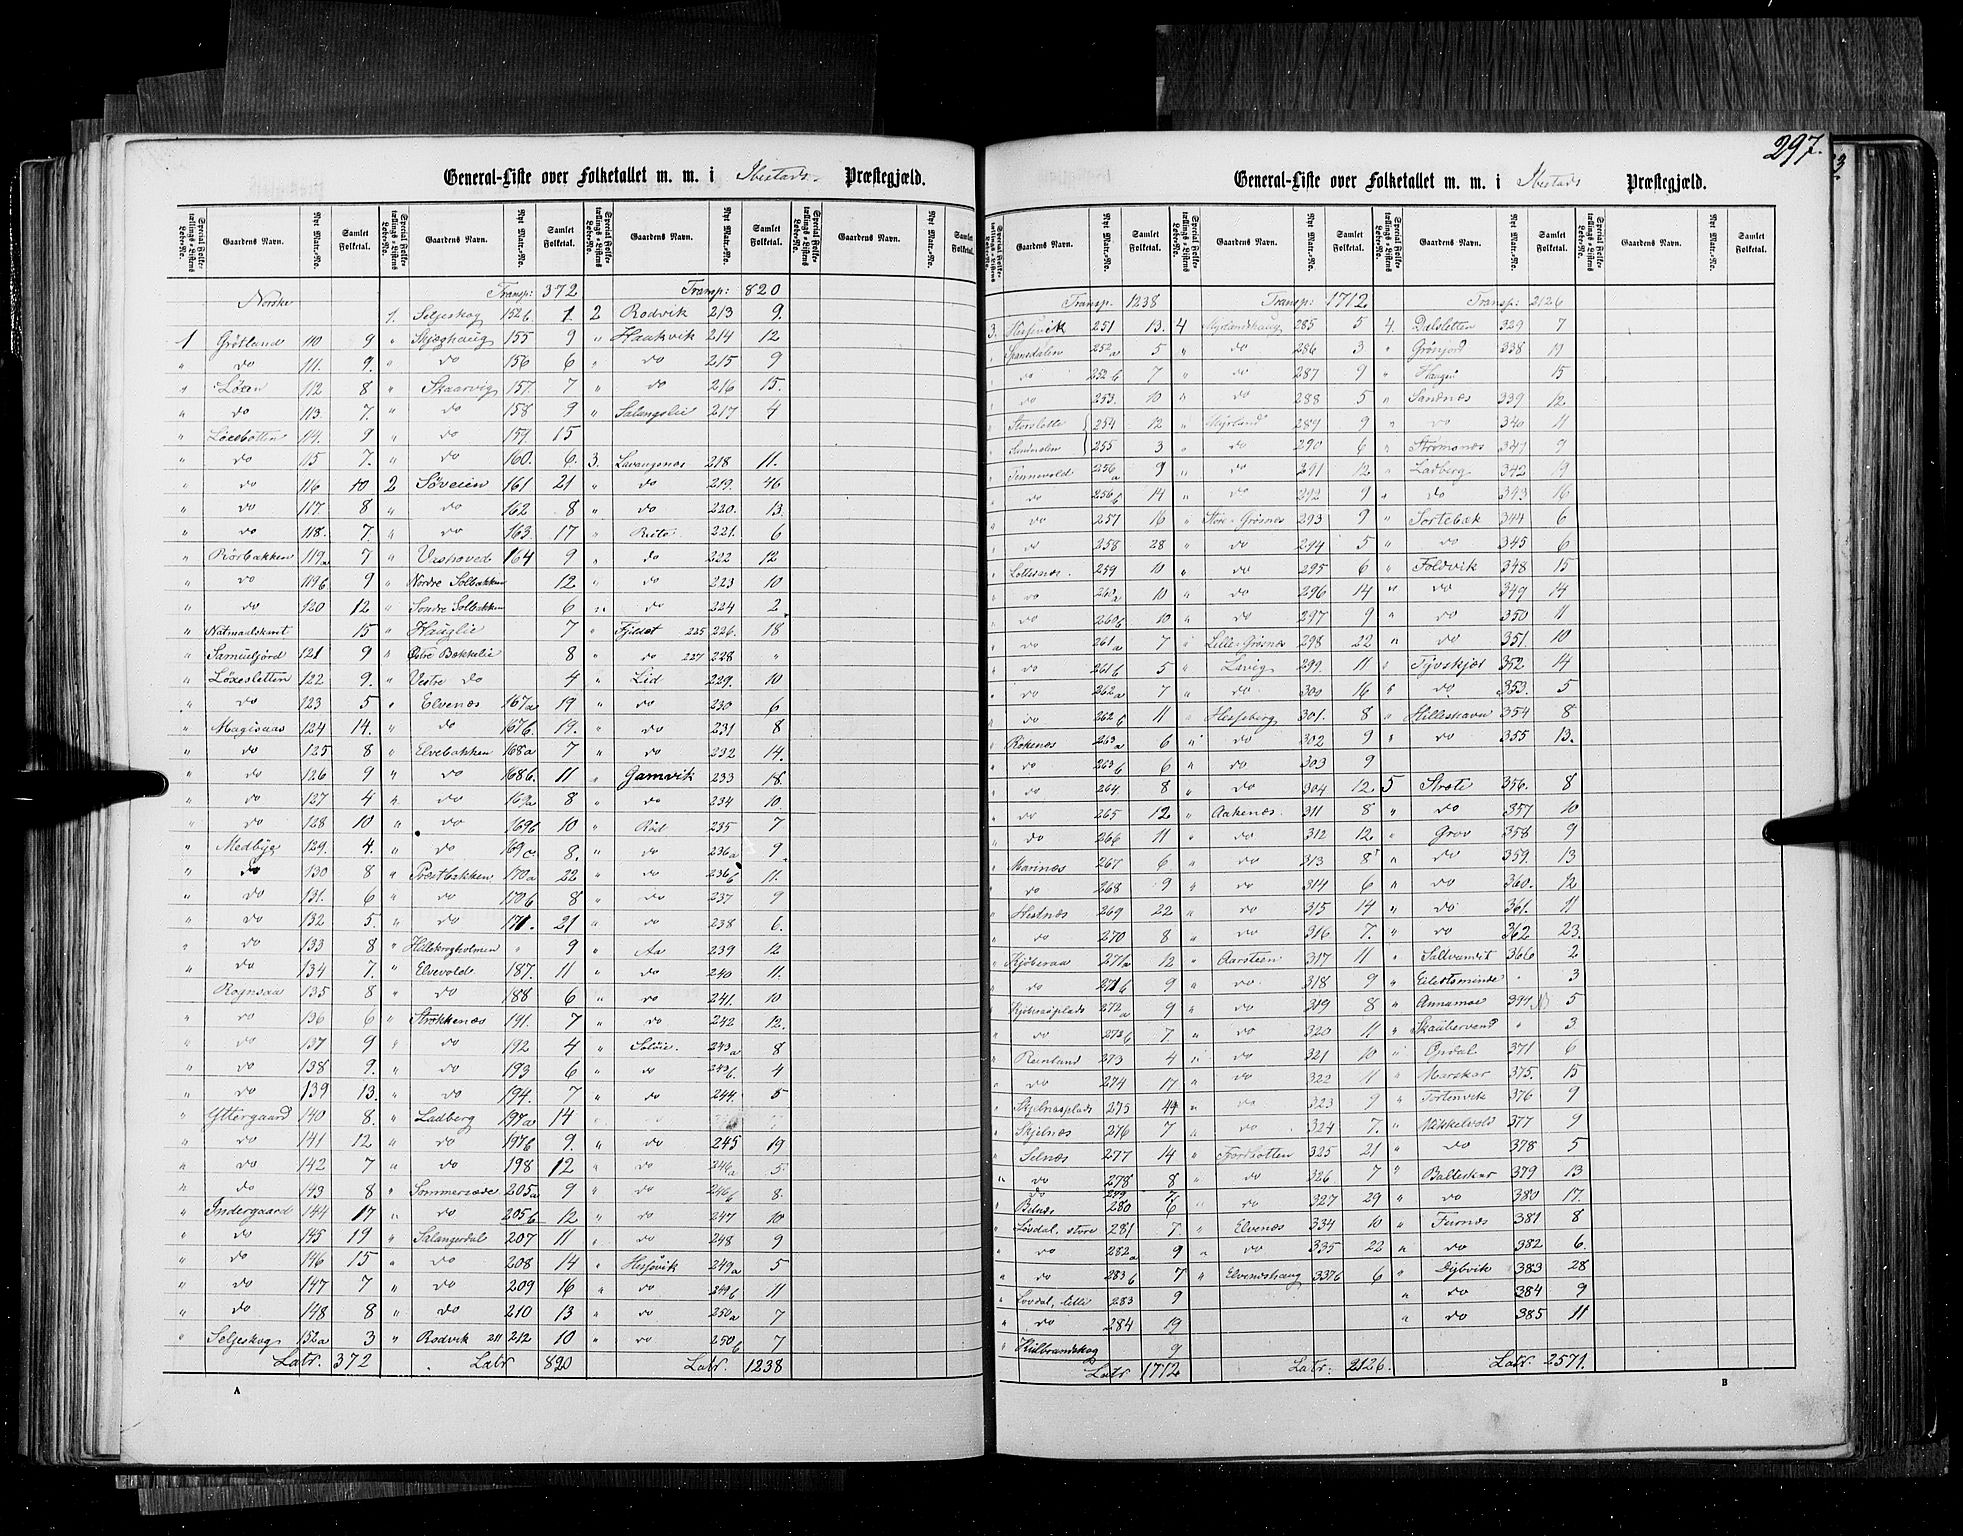 297.
General-Liste over Folketallet m. m. i Ibestads Præstegjæld.
Special Folketællings-Listens Løbe-No. Gaardens Navn. Nyt Matr.-No. Samlet Folketal.
Norske
1 Grötland 110 9
" do 111. 9.
" Löxen 112 8
" do 113 7
" Löxebotten 114. 9
" do 115 7.
" do 116 10
" do 117. 8
" do 118. 7.
" Rörbakken 119a 7
" do 119b 9
" do 120 12
" Natmaalskvit 15
" Samuelfjord 121 9
" Löxesletten 122 9.
" do 123 5
" Magesaas 124 14.
" do 125 8
" do 126 9
" do 127 4
" do 128 10
" Medbye 129. 4.
" do 130 8
" do 131. 6
" do 132 5.
" do 133 8
" do 134 7.
Rognsaa 135 8
" do 136 6
" do 137 9
" do 138 9.
" do 139 13.
" Yttergaard 140 8.
" do 141 12
" do 142 7
" do 143 8
" Indergaard 144 17
" do 145 19
" do 146 15
" do 147 7
" do 148 8
" Seljeskog 152a 3
Latr. 372
Transp: 372
1. Seljeskog 152b 1.
" Skjæghaug 155 9
" do 156 6
" Skaarvig 157. 7
" do 158 9
" do 159. 15
" do 160. 6.
2 Söveien 161 21
" do 162 8
" do 163. 17
" Vashoved 164 9
" Nordre Solbakken 12
" Søndre Solbakken 6
" Hauglie 7
" Østre Bakkelie 8
" Vestre do 4
" Elvenæs 167a 19
" do 167b. 19.
" Elvebakken 168a 7
" do 168b. 11
" do 169a 8
" do 169b 10
" do 169c. 8.
" Præstbakken 170a 22
" do 170b 8
" do 171. 21
" Hilleskogholmen " 9
" Elvevold 187. 11
" do 188 6
" Strokkenæs 191. 7
" do 192 4
" do 193 6
" do 194. 7
" Ladberg 197a 14
" do 197b 9.
" do 198 12
" Sommersæde 205a 9
" do 205b 12
" Salangerdal 207 11
" do 208 14
" do 209 16
" do 210 13
" Rodvik 211 212 10
Latr 820
Transp: 820
2 Rodvik 213 9.
" Haukvik 214 12
" do 215 9
" do 216 15.
" Salangslie 217 4
3. Lavangsnæs 218 11.
" do 219. 46
" do 220. 13.
" 221. 6
" do 222 12
" do 223 10
" do 224 2
" Fjilsæt 225 226. 18
" do 227 228 "
" Lid 229. 10
" do 230 6
" do 231 8
" do 232 14.
" Gamvik 233 18.
" do 234 10.
" Röd 235 7
" do 236a 9
" do 236b 11.
" do 237 9
" do 238 6.
" Aa 239 12
" do 240 11.
" do 241. 10
" do 242 12.
" 243a 8
" do 243b. 4
" do 244. 5
" do 245 19
" do 246a 5
" do 246b 8.
" do 247 10
" do 248 9
" Hesjevik 249a 5
" do 249b 11
" do 250a 7
" do 250b 7
Latr. 1238
General-Liste over Folketallet m. m. i Ibestads Præstegjæld.
Gaardens Navn. Nyt Matr.-No. Samlet Folketal. Special Folketællings-Listens Løbe-No.
Transp. 1238
3. Hesjevik 251 13.
" Spansdalen 252a 5
" do 252b 7
" do 253. 10
" Storslette 254 12
" 255 3
" Tennevold 256a 9
" do 256b 14
" do 257 16
" do 258 28
" Lottesnæs. 259 10
" do 260a 10
" do 260b 10
" do 261a 7
" do 261b 5
" do 262a 7
" do 262b 11
" Rökenæs 263a 6
" do 263b 6
" do 264 8
" do 265 12
" do 266 11
" Marinæs 267 6
" do 268 9
" Hestnæs 269 22
" do 270 8
" Kjöberaa 271a 12
" do 271b 9
" 272a 9
" do 272b 7.
" Reinland 273 4
" do 274 17
" Skjelnæsplads 275 4
" Skjelnæs 276 7
" Selnæs 277 14
" do 278 8
do 279 7
" 280 6
" Lövdal, store 281 7.
" do 282a 9
" do 283b 7
" Lovdal, lille 283 9
" do 284 19
" Hilbrandskog 9
Latr 1712
Transp: 1712.
4 Myrlandshaug 285 5
" do 286 3
" do 287 9
" do 288 5
" Myrland 289 9
" do 290 6
" do 291 12
" do 292 9
" Store-Grösnes 293 9
" do 294 5
" do 295 6
" do 296 14
" do 297 9
" Lille-Grösnes 298 22
" Lavig 299. 11
" do 300 16
" Hesseberg 301. 8
" do 302 9
" do 303 9
" do 304 12.
" Aakenæs. 311 8
" do 312 12.
" do 313 8
" do 314 6
" do 315 14
" do 316 7.
" Aarsteen 317 11
" do. 318 9
" do 319 8
" do 320 11
" do 321 10
" do 322 11
" do 323 9
" do 324 7.
" Fjordbotten 325 21
" do 326 7
" do 327 29
" Elvenæs 334 10
" do 335 22
" Elveneshaug 337b 6
Latr: 2126.
Transp: 2126
4. Dalsletten 329 7
" Grönjord 338 19
" Haugen 15
" Sandnæs 339 12
" do 340 11
" Strömsnæs 341 9
" Ladberg 342 19
" do 343 16
" Sortebæk 344 6
" do 345 6
" Foldvik 348 15
" do 349 14
" do 350 11
" do 351. 10
" Tjvskjær 352 14
" do 353. 5
" Hilleshavn 354 8
" do 355 13.
5 Strate 356. 8
" do 357 10
" Grov 358 9
" do 359. 13
" do 360. 12
" do 361. 11
" do 362 23.
" Saltvandet 366 2
" Eilertsminde " 3
" Annamoe 394 5
" Skaubervand " 3
" Opdal 371 6
" Marskar 375. 15
" Tortenvik 376 9
" Mikkelvold 377 9
" do 378 5
" Balteskar 379 13
" do 380 17.
" Furnæs 381 8
" do 382 6.
" Dybvik 383 28
" do 384 9
" do 385 11
Latr. 2571.
A
B